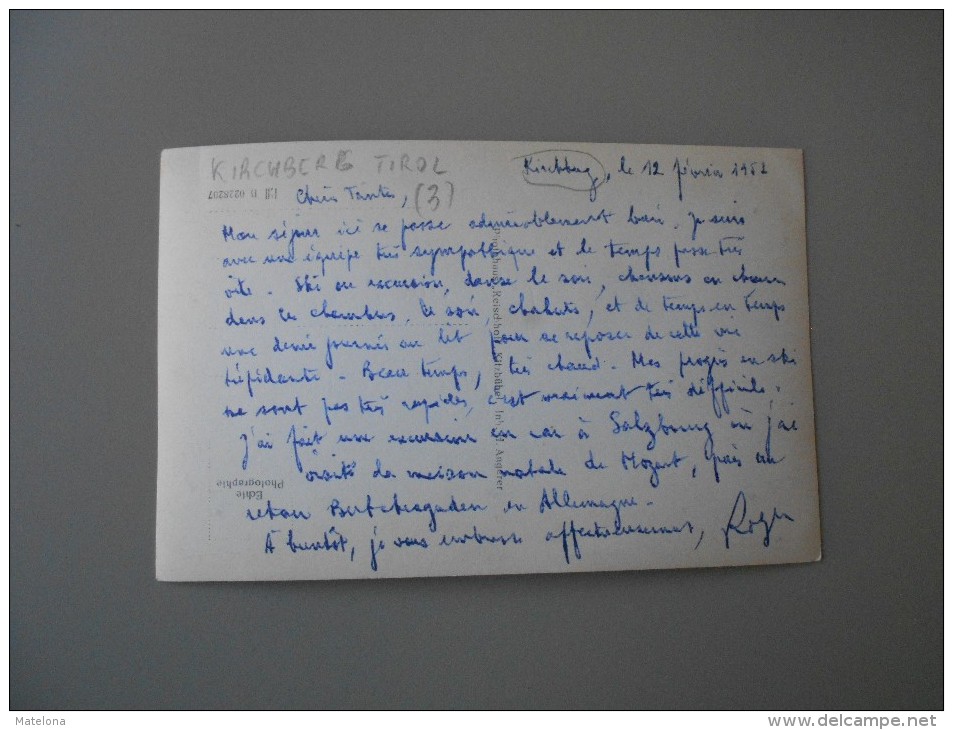 KIRCHBERG TIROL
Kirchberg, le 12 février 1952
Edit D 0228207
Chères Tantes, (3)
Mon séjour ici se passe admirablement bien. Je suis
avec une équipe très sympathique et le temps passe très
vite. Ski ou excursion, danse le soir, chansons en chœur
dans les chambres, le soir, chahuts, et de temps en temps
une demie journée au lit pour se reposer de cette vie
trépidante. Beau temps, très chaud. Mes progrès en ski
ne sont pas très rapides, c'est vraiment très difficile.
J'ai fait une excursion en car à Salzbourg où j'ai
visité la maison natale de Mozart, puis au
retour Berchtesgaden en Allemagne.
À bientôt, je vous embrasse affectueusement, Roger
Photohaus Reischholf Kitzbühel, Inh. J. Angerer
Echte
Photographie
Matelona
http://www.delcampe.net